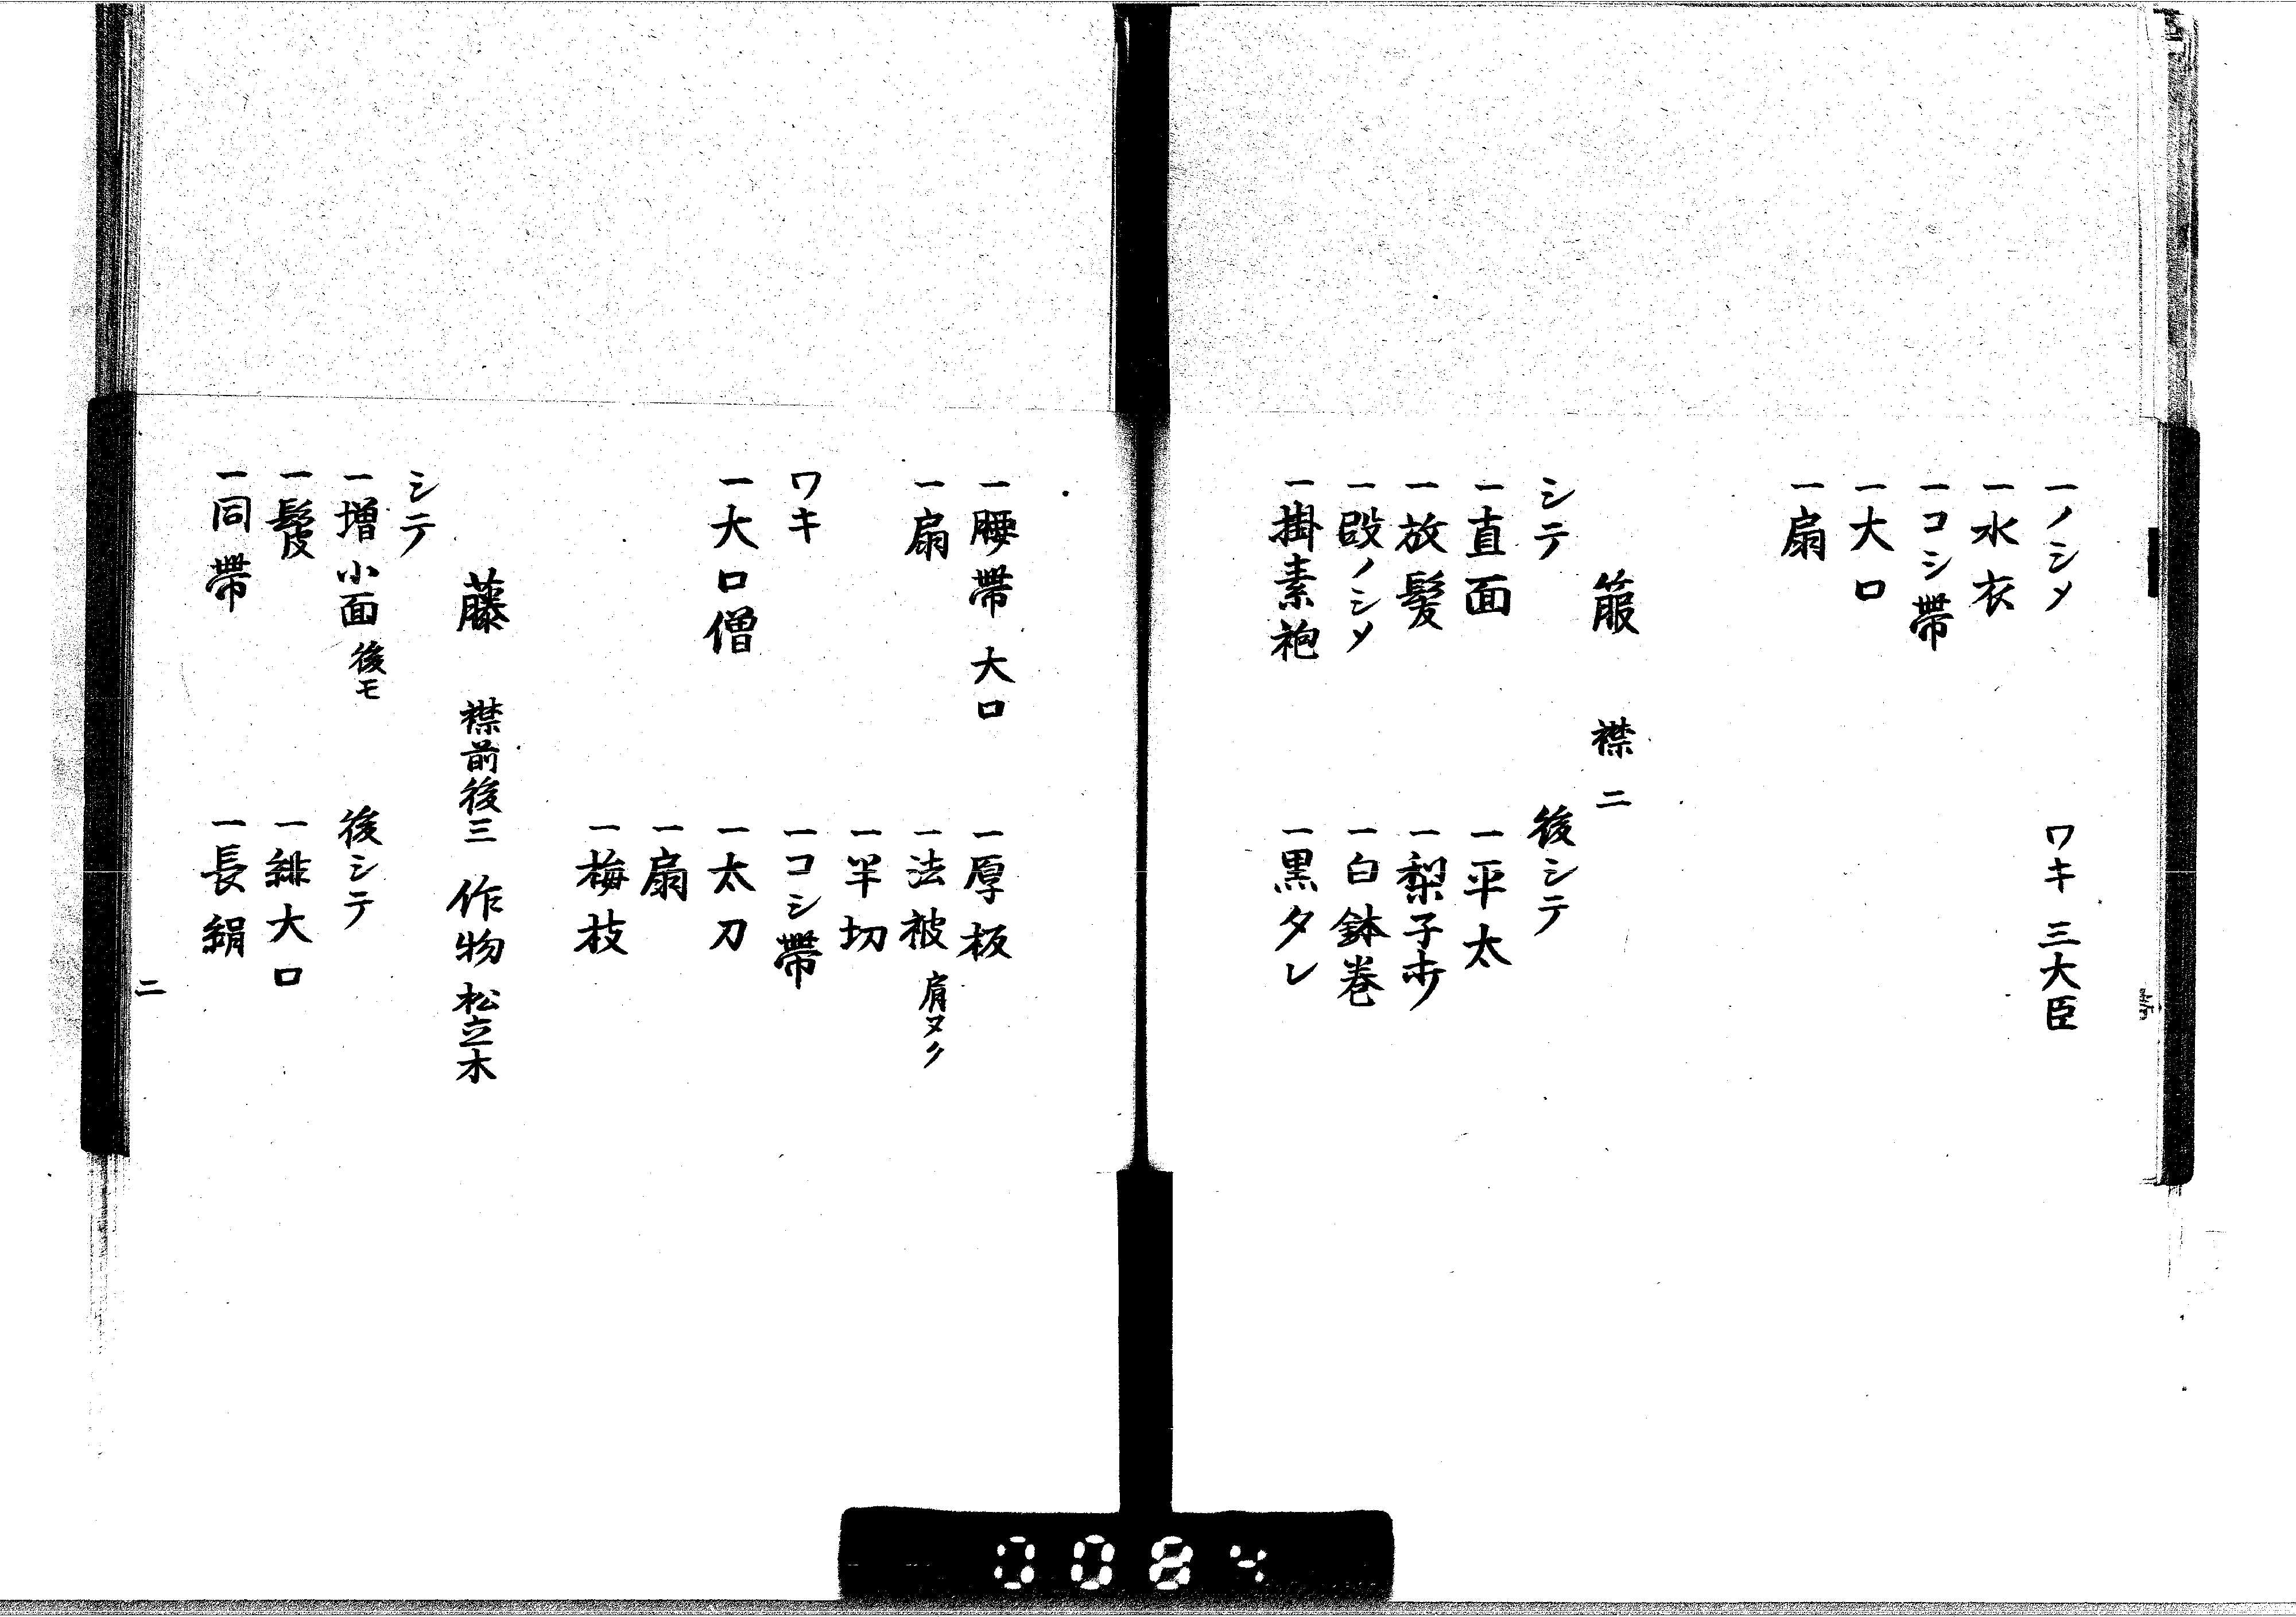 一ノシメ
一水衣
一コシ帯
一大口
一扇
ワキ 三大臣
箙 襟二
シテ
一直面
一放髪
一段ノシメ
一掛素袍
後シテ
一平太
一梨子ホ
一白鉢巻
一黒タレ
一腰帯 大口
一扇
ワキ
一大口僧
一厚板
一法被 肩ヌク
一半切
一コシ帯
一太刀
一扇
一梅枝
藤 襟前後三 作物 松立木
シテ
一増 小面 後モ
一鬘
一同帯
後シテ
一緋大口
一長絹
二
0084